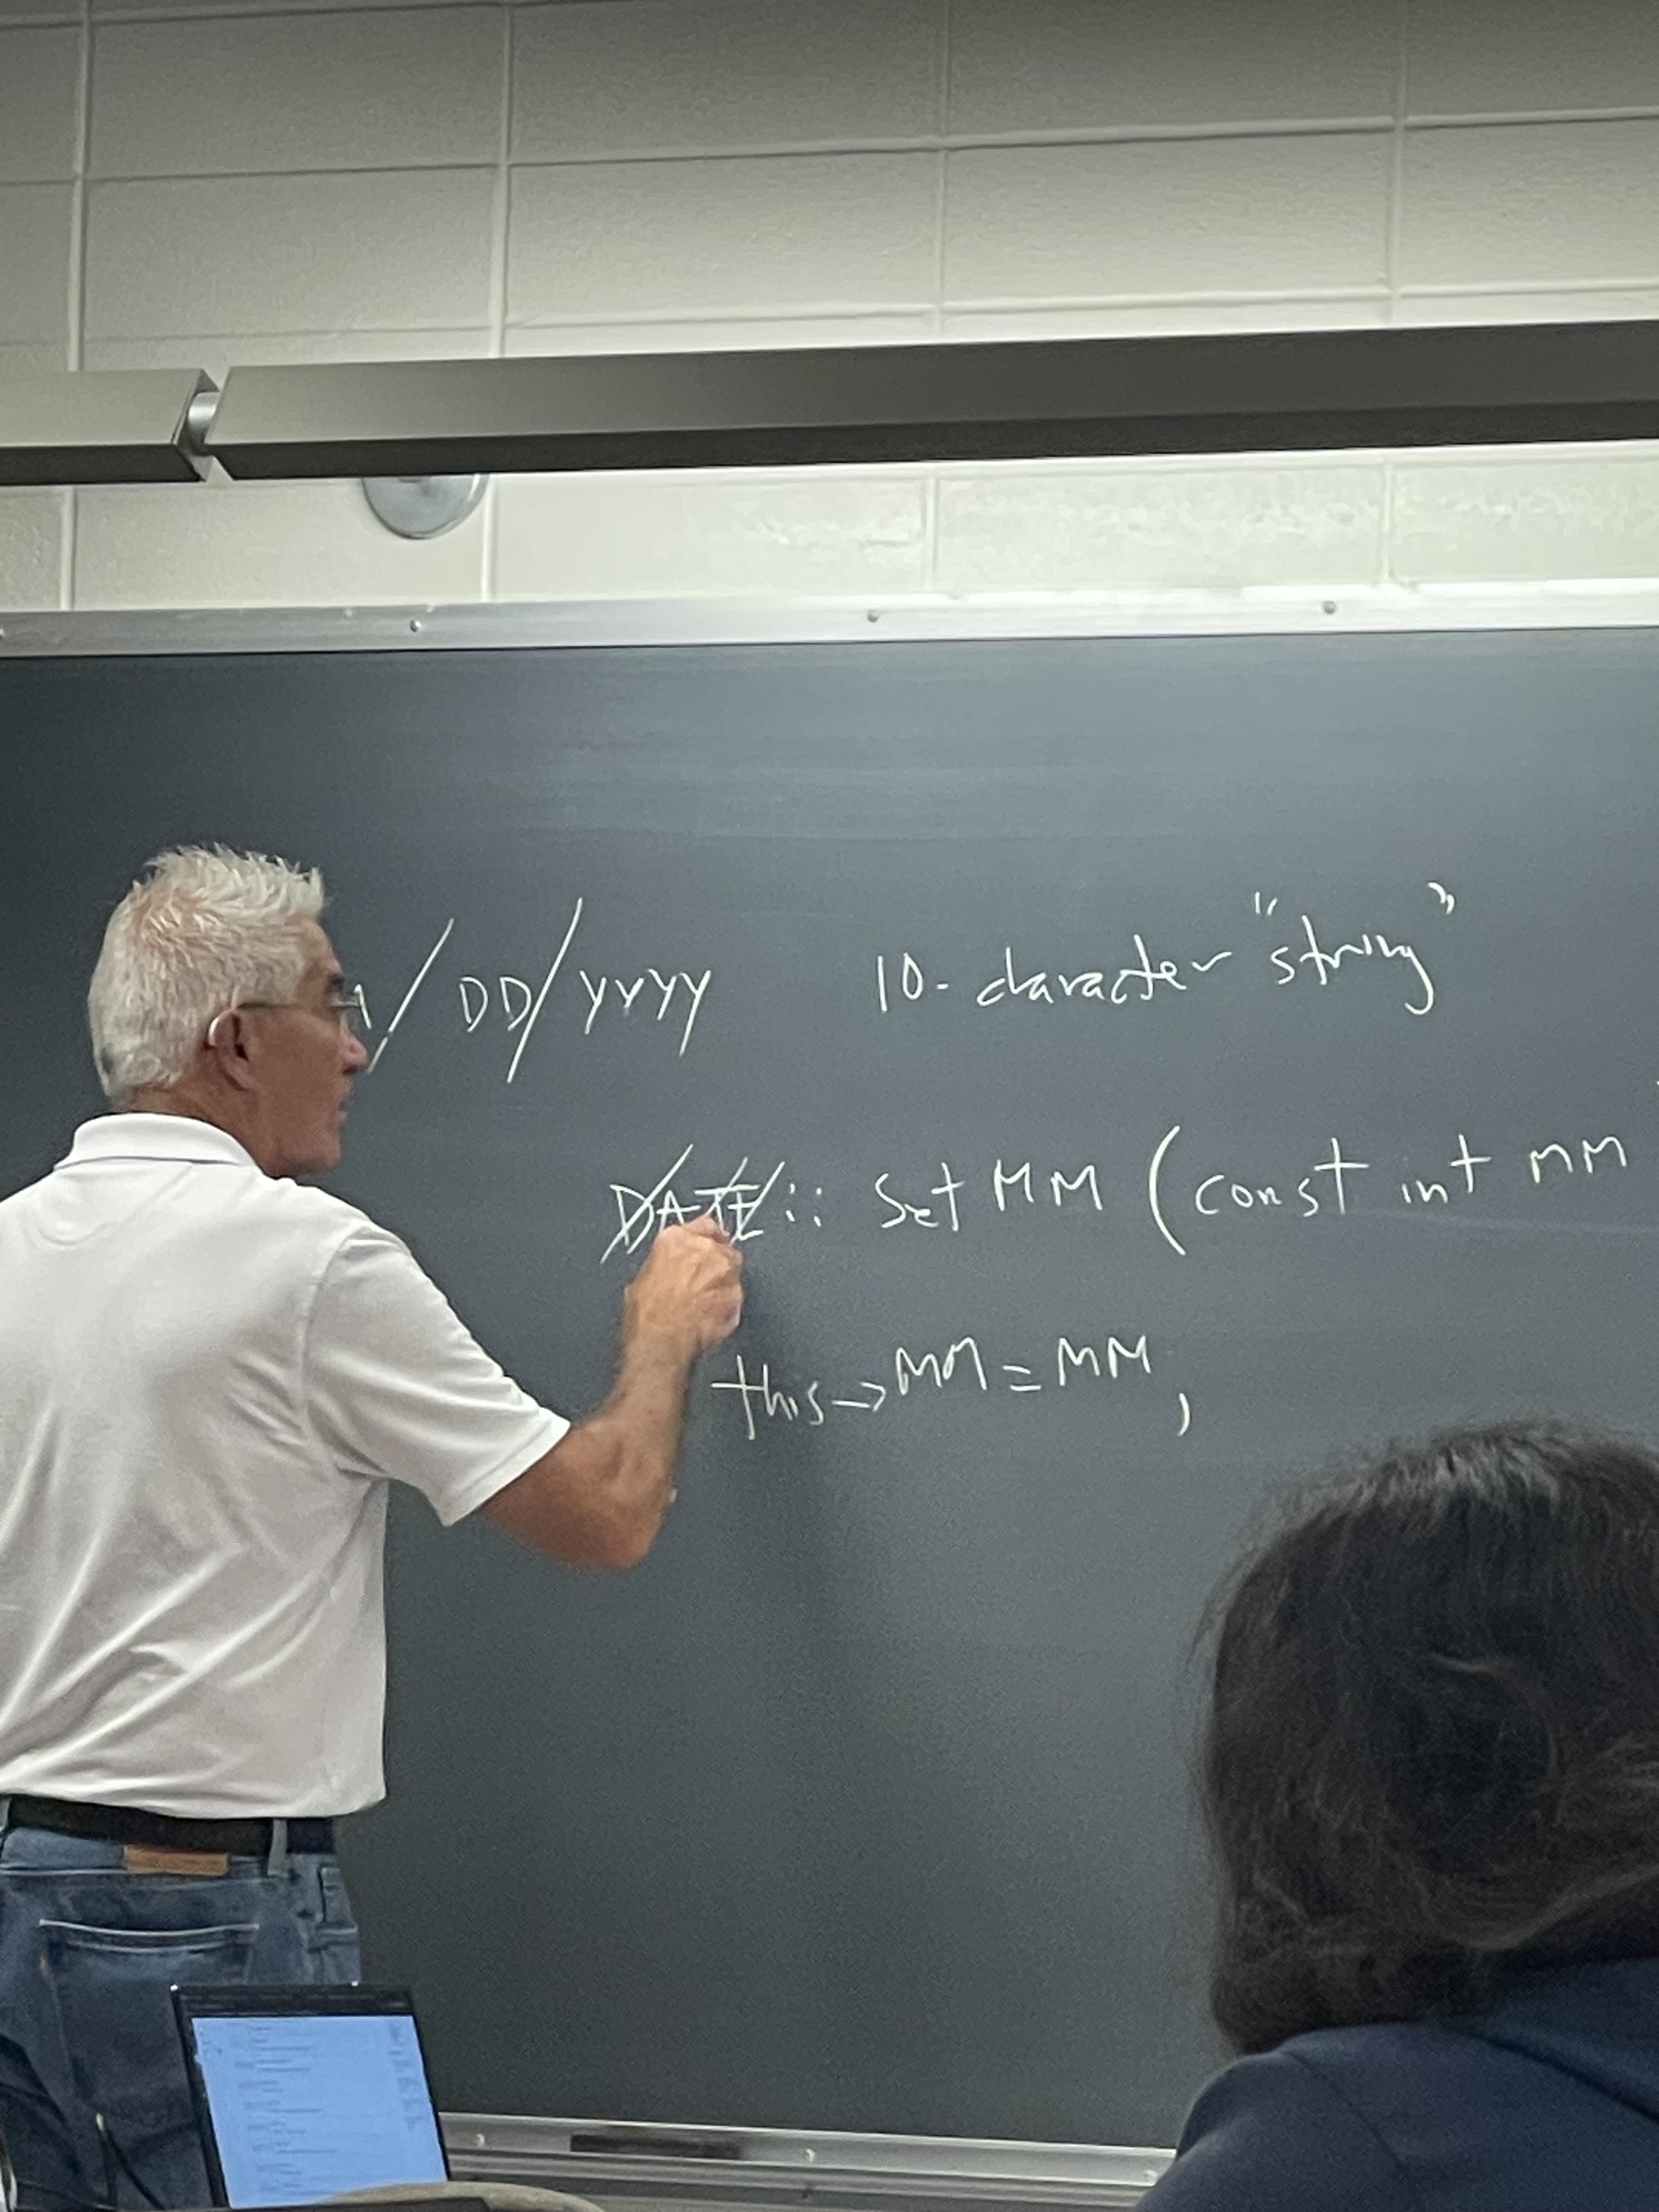 / DD/YYYY 10-character "string"
DATE:: Set MM (const int MM
this->MM = MM;